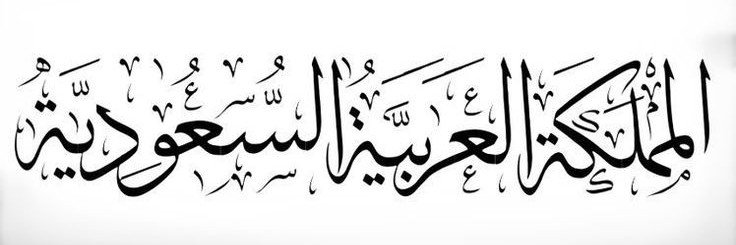 المملكة العربية السعودية